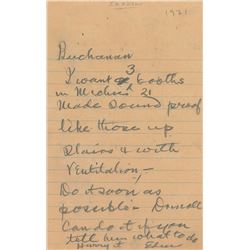 1921
Buchanan
I want 3 booths
in Medius 21
Made Sound proof
like those up
stairs & with
Ventilation,-
Do it soon as
possible - Driscoll
Can do it if you
tell him what to do
Hurry it